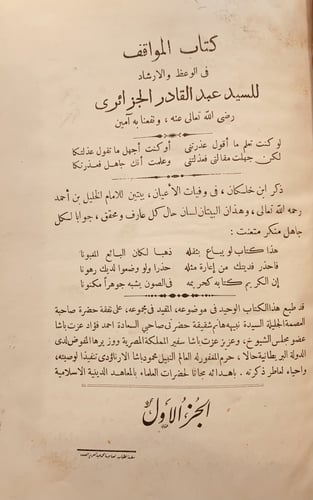 كتاب المواقف
فى الوعظ والارشاد
للسيد عبد القادر الجزائرى
رضى الله تعالى عنه، ونفعنا به آمين
لو كنت تعلم ما أقول عذرتنى أو كنت أجهل ما تقول عذلتكا
لكن جهلت مقالتى فعذلتنى وعلمت أنك جاهل فعذرتكا
ذكر ابن خلكان، فى وفيات الأعيان، بيتين للامام الخليل بن أحمد
رحمه الله تعالى، وهذان البيتان لسان حال كل عارف ومحقق، جوابا لكل
جاهل منكر متعنت:
هذا كتاب لو يباع بثقله ذهبا لكان البائع المغبونا
فاحذر فديتك من إعارة مثله حذرا ولو وضعوا لديك رهونا
إن الكريم كتابه كحريمه فى الصون يشبه جوهرا مكنونا
قد طبع هذا الكتاب الوحيد فى موضوعه، المفيد فى مجموعه، على نفقة حضرة صاحبة
العصمة الجليلة السيدة نبيهه هانم شقيقة حضرتى صاحبى السعادة احمد فؤاد عزت باشا
عضو مجلس الشيوخ، وعزيز عزت باشا سفير المملكة المصرية ووزيرها المفوض لدى
الدولة البريطانية حالا، حرم المغفور له العالم النبيل محمود باشا الارناؤدى تنفيذا لوصيته،
واحياء لعاطر ذكرته. باهدائه مجانا لحضرات العلماء بالمعاهد الدينية الاسلامية
الجزء الأول